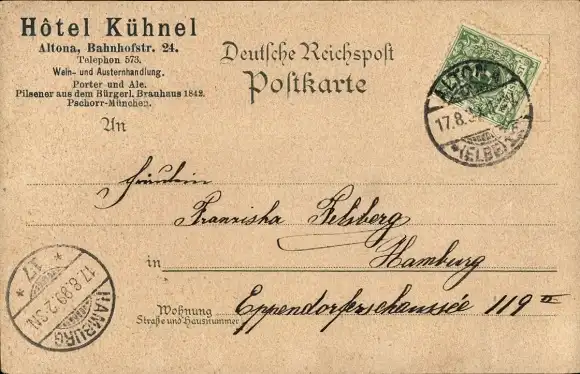 Hôtel Kühnel
Altona, Bahnhofstr. 24.
Telephon 573.
Wein- und Austernhandlung.
Porter und Ale.
Pilsener aus dem Bürgerl. Brauhaus 1842.
Pschorr-München.
Deutsche Reichspost
Postkarte
ALTONA
17.8.
*(ELBE)
An
Fräulein
Franziska Felsberg
Hamburg
in
Wohnung
Straße und Hausnummer
Eppendorferchaussée 119 II
HAMBURG
17.8.99. 2-3N.
* 17 *